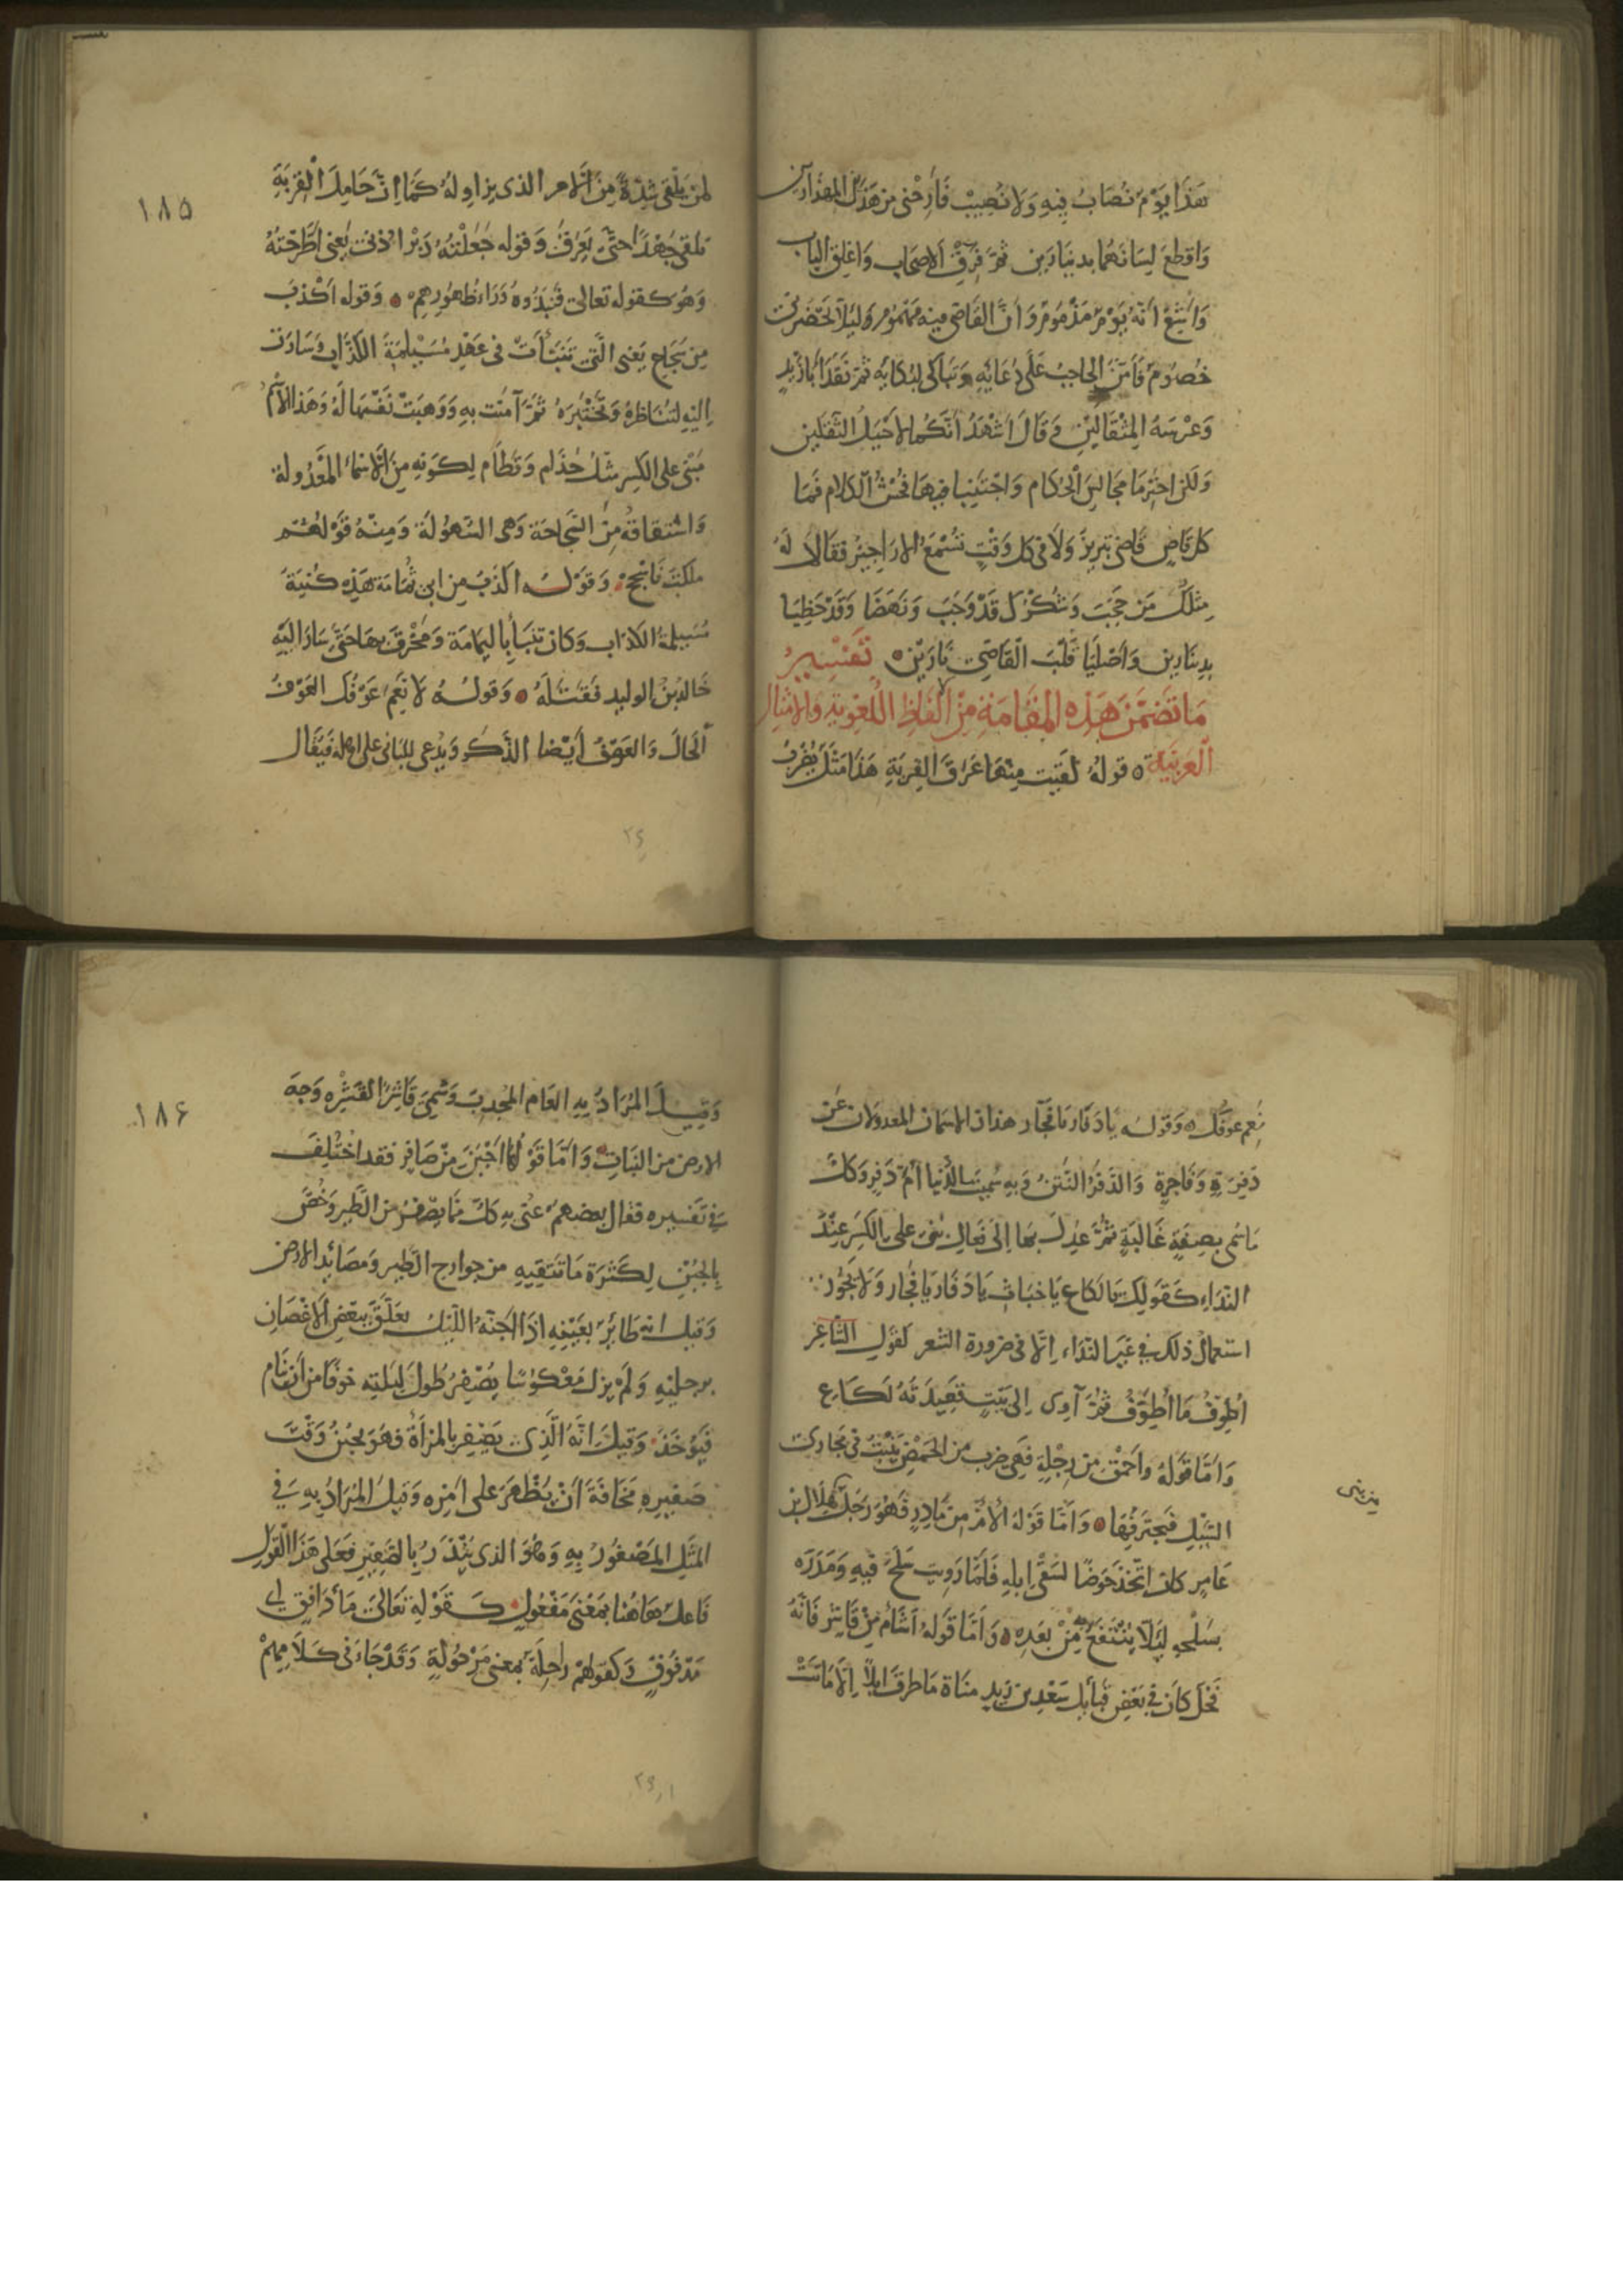 هَذَا يَوْمٌ نُصَابُ فِيهِ وَلَا نُصِيبُ فَأَرِحْنِي مِنْ هَذَيْنِ المِهْذَارَيْنِ
وَاقْطَعْ لِسَانَهُمَا بِدِينَارَيْنِ ثُمَّ فَرِّقِ الأَصْحَابَ وَاغْلِقِ البَابَ
وَأَشِعْ أَنَّهُ يَوْمٌ مَذْمُومٌ وَأَنَّ القَاضِي فِيهِ مَهْمُومٌ لِئَلَّا يَحْضُرَنِي
خُصُومٌ فَأَمَّنَ الحَاجِبُ عَلَى دُعَائِهِ وَتَبَاكَى لِبُكَائِهِ ثُمَّ نَقَدَ أَبَا زَيْدٍ
وَعِرْسَهُ المِثْقَالَيْنِ وَقَالَ أَشْهَدُ أَنَّكُمَا لَأَحْيَلُ الثَّقَلَيْنِ
وَلَكِنِ احْتَرِمَا مَجَالِسَ الحُكَّامِ وَاجْتَنِبَا فِيهَا فُحْشَ الكَلَامِ فَمَا
كُلُّ قَاضٍ قَاضِي تَبْرِيزَ وَلَا فِي كُلِّ وَقْتٍ تُسْمَعُ الأَرَاجِيزُ فَقَالَا لَهُ
مِثْلُكَ مَنْ حَجَبَ وَشُكْرُكَ قَدْ وَجَبَ وَنَهَضَا وَقَدْ حَظِيَا
بِدِينَارَيْنِ وَأَصْلَيَا قَلْبَ القَاضِي نَارَيْنِ ۞ تَفْسِيرُ
مَا تَضَمَّنَ هَذِهِ المَقَامَةِ مِنَ الأَلْفَاظِ اللُّغَوِيَّةِ وَالأَمْثَالِ
العَرَبِيَّةِ ۞ قوله لَقِيتُ مِنْهَا عَرَقَ القِرْبَةِ هَذَا مَثَلٌ يُضْرَبُ
١٨٥
لِمَنْ يَلْقَى شِدَّةً مِنَ الأمر الذي يزاوله كَمَا إنَّ حَامِلَ القِرْبَةِ
يلقى جُهْدًا حَتَّى يَعْرَقَ وَقوله جَعَلْتُهُ دَبْرَ أُذُنِي يَعْنِي اطَّرَحْتُهُ
وَهُوَ كقوله تعالى فَنَبَذُوهُ وَرَاءَ ظُهُورِهِمْ ۞ وَقوله أَكْذَبَ
مِنْ سَجَاحِ يَعْنِي الَّتِي تَنَبَّأَتْ فِي عَهْدِ مُسَيْلِمَةَ الكَذَّابِ وَسَارَتْ
إِلَيْهِ لِتُنَاظِرَهُ وَتَخْتَبِرَهُ ثُمَّ آمَنَتْ بِهِ وَوَهَبَتْ نَفْسَهَا لَهُ وَهَذَا الاسْمُ
مَبْنِي على الكَسْرِ مِثْلَ حَذَامِ وَقَطَامِ لِكَوْنِهِ مِنَ الأَسْمَاءِ المَعْدُولَةِ
وَاشْتِقَاقُهُ مِنَ السَّجَاحَةِ وَهِيَ السُّهُولَةُ وَمِنْهُ قَوْلُهُمْ
مَلَكْتَ فَأَسْجِحْ وَقَوْلُهُ أَكْذَبُ مِنْ أَبِي ثُمَامَةَ هَذِهِ كُنْيَةُ
مُسَيْلِمَةَ الكَذَّابِ وَكَانَ تَنَبَّأَ بِاليَمَامَةِ وَمَخْرَقَ بِهَا حَتَّى سَارَ إِلَيْهِ
خَالِدُ بْنُ الوليد فَقَتَلَهُ ۞ وَقولُهُ لَا نَعِمَ عَوْفُكِ العَوْفُ
الحَالُ وَالعَوْفُ أَيْضًا الذَّكَرُ وَيُدْعَى لِلْبَانِي على أهله فَيُقَالُ
نَعِمَ عَوْفُكَ ۞ وَقوله يَا دَفَارِ يَا فَجَارِ هذان الاسمان المعدولان عَنْ
دَفِرَةٍ وَفَاجِرَةٍ وَالدَّفَرُ النَّتْنُ وَبِهِ سُمِّيَتِ الدُّنْيَا أُمَّ دَفْرٍ وَكُلُّ
مَا سُمِّيَ بِصِفَةٍ غَالِبَةٍ ثُمَّ عُدِلَ بِهَا إِلَى فَعَالِ بُنِيَ على الكَسْرِ عِنْدَ
النِّدَاءِ كَقَوْلِكَ يَا لَكَاعِ يَا خَبَاثِ يَا دَفَارِ يَا فَجَارِ وَلَا يَجُوزُ
استعمال ذلك فِي غَيْرِ النِّدَاءِ إِلَّا فِي ضرورة الشعر كَقَوْلِ الشَّاعِرِ
أُطَوِّفُ مَا أُطَوِّفُ ثُمَّ آوِي إِلَى بَيْتٍ قَعِيدَتُهُ لَكَاعِ
وَأَمَّا قَوْلُهُ وأَحْمَقُ مِنْ رِجْلَةٍ فَهِيَ ضرب مِنَ الحَمْضِ يَنْبُتُ فِي مَجَارِي
السَّيْلِ فَيَجْتَرِفُهَا ۞ وَأَمَّا قَوْلُهُ أَلْأَمُ مِنْ مَادِرٍ فَهُوَ رَجُلٌ هِلَالِ بْنِ
مِنْ بني
عَامِرٍ كانَ اتَّخَذَ حَوْضًا لِسَقْيِ إِبِلِهِ فَلَمَّا رَوِيَتْ سَلَحَ فِيهِ وَمَدَرَهُ
بِسَلْحِهِ لِئَلَّا يُنْتَفَعَ بِهِ مِنْ بَعْدِهِ ۞ وَأَمَّا قَوْلُهُ أَشْأَمُ مِنْ قَاشِرٍ فَإِنَّهُ
فَحْلٌ كَانَ فِي بَعْضِ قَبَائِلِ سَعْدِ بن زَيْدِ مَنَاةَ مَا طَرَقَ إِبِلًا إِلَّا مَاتَتْ
١٨۶
وَقِيلَ المُرَادُ بِهِ العَامُ المُجْدِبُ وَسُمِّيَ قَاشِرًا لِقَشْرِهِ وَجْهَ
الأرض من النَّبَاتِ وَأَمَّا قَوْلُهَا أَجْبَنُ مِنْ صَافِرٍ فقد اخْتُلِفَ
فِي تَفْسِيرِهِ فقال بعضهم عُنِيَ بِهِ كُلُّ مَا يَصْفِرُ مِنَ الطَّيْرِ وَخُصَّ
بِالجُبْنِ لِكَثْرَةِ مَا تَتَّقِيهِ مِنْ جوارح الطَّيْرِ وَمَصَائِدِ الأرض
وَقيل إنه طَائِرٌ بِعَيْنِهِ إِذَا أجَنَّهُ اللَّيْلُ تعَلَّقَ بِبَعْضِ الأَغْصَانِ
بِرِجْلَيْهِ وَلَمْ يَزَلْ مَعْكُوسًا يَصْفِرُ طُولَ لَيْلَتِهِ خوفًا مِنْ أَنْ يَنَامَ
فَيُؤْخَذَ وَقِيلَ إِنَّهُ الَّذِي يَصْفِرُ بِالمَرْأَةِ فَهُوَ يَجْبُنُ وَقْتَ
صَفِيرِهِ مَخَافَةَ أَنْ يُظْهَرَ على أَمْرِهِ وَقِيلَ المُرَادُ بِهِ فِي
المَثَلِ المَصْفُورُ بِهِ وَهُوَ الذي يُنْذَرُ بِالصَّفِيرِ فَعَلَى هَذَا القَوْلِ
فَاعِلٌ هَاهُنَا بِمَعْنَى مَفْعُولٍ كَقَوْلِهِ تَعَالَى مَاءٍ دَافِقٍ أي
مَدْفُوقٍ وَكقولهم رَاحِلَةٌ بِمَعْنَى مَرْحُولَةٍ وَقَدْ جَاءَ فِي كَلَامِهِمْ